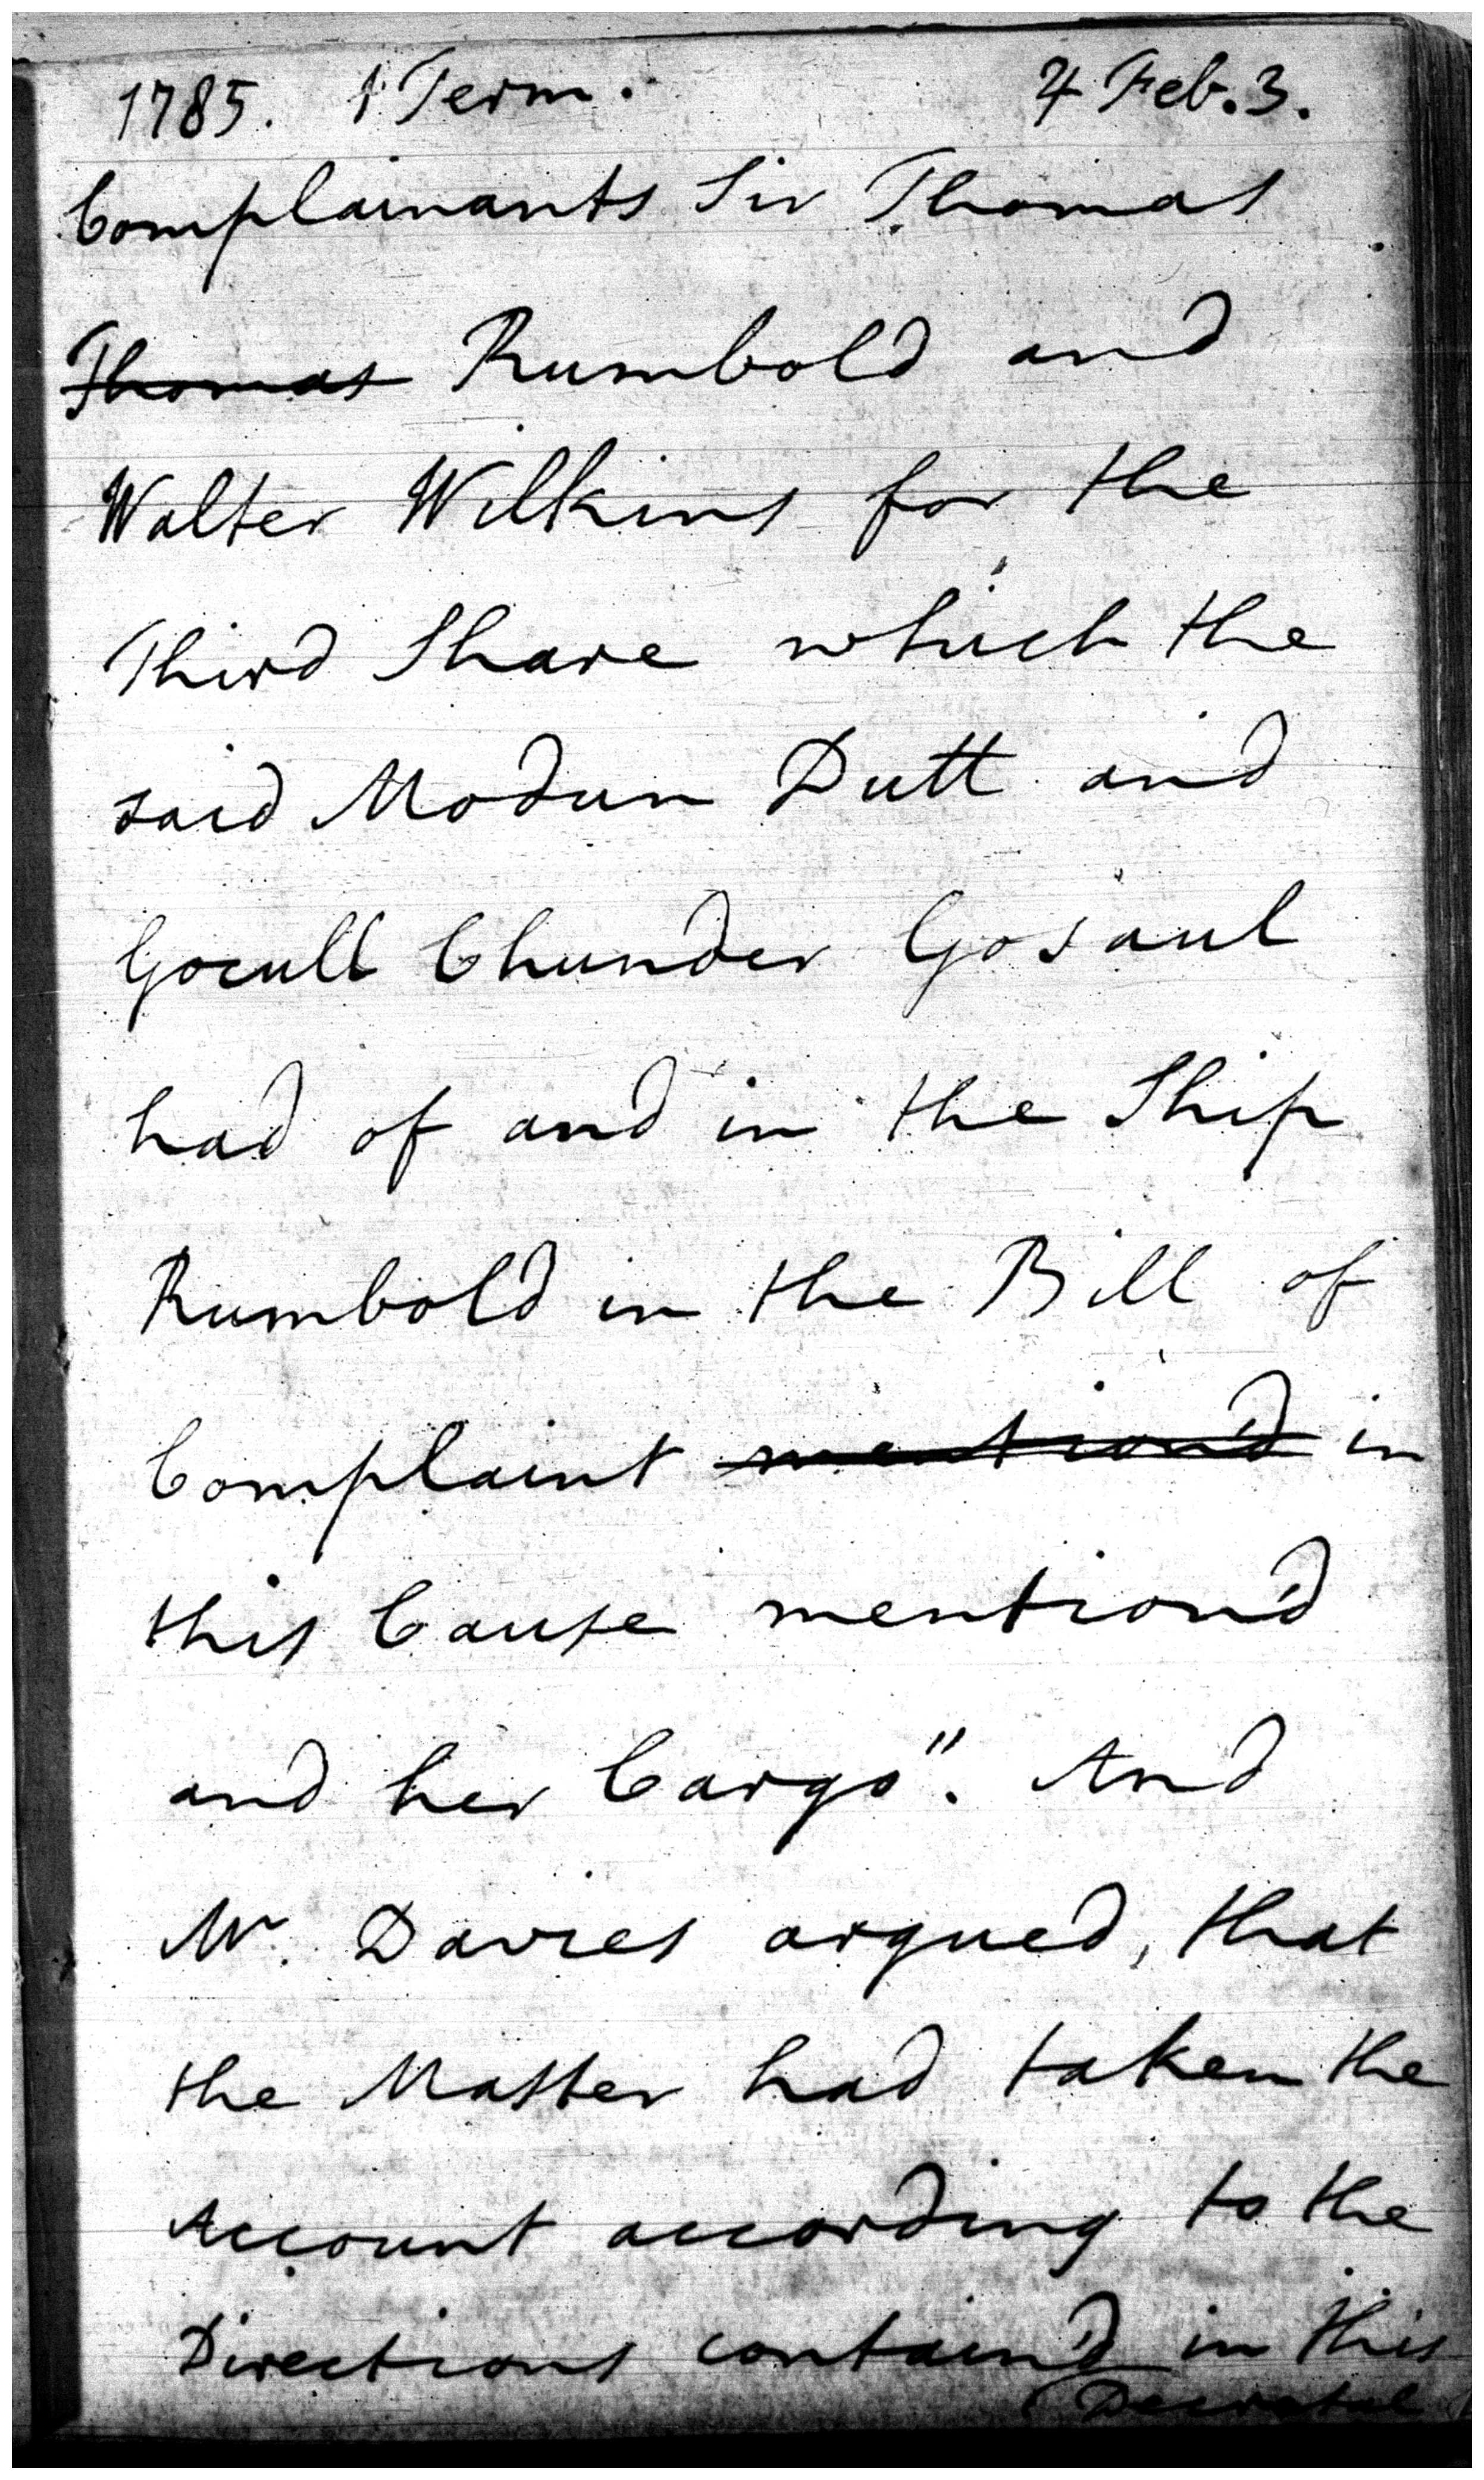 1785. 1 Term. 4 Feb. 3.
Complainants Sir Thomas
Thomas Rumbold and
Walter Wilkins for the
Third Share which the
said Modun Dutt and
Gocull Chunder Gosaul
had of and in the Ship
Rumbold in the Bill of
Complaint mention'd in
this Cause mention'd
and her Cargo". And
Mr. Davies argued, that
the Master had taken the
Account according to the
Directions contain'd in this
Decretal